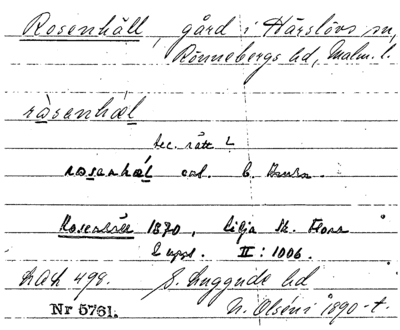 Rosenhäll, gård i Härslövs sn,
Rönnebergs hd, Malm. l.
ròsenhæl
sec. rätt L
rosenhæl enl.
Rosenhäll 1870, Lilja Sk. Flora
2 uppl. II: 1006.
LAL 498. S. Luggude hd
Nr 5761. N. Olséni 1890-t.